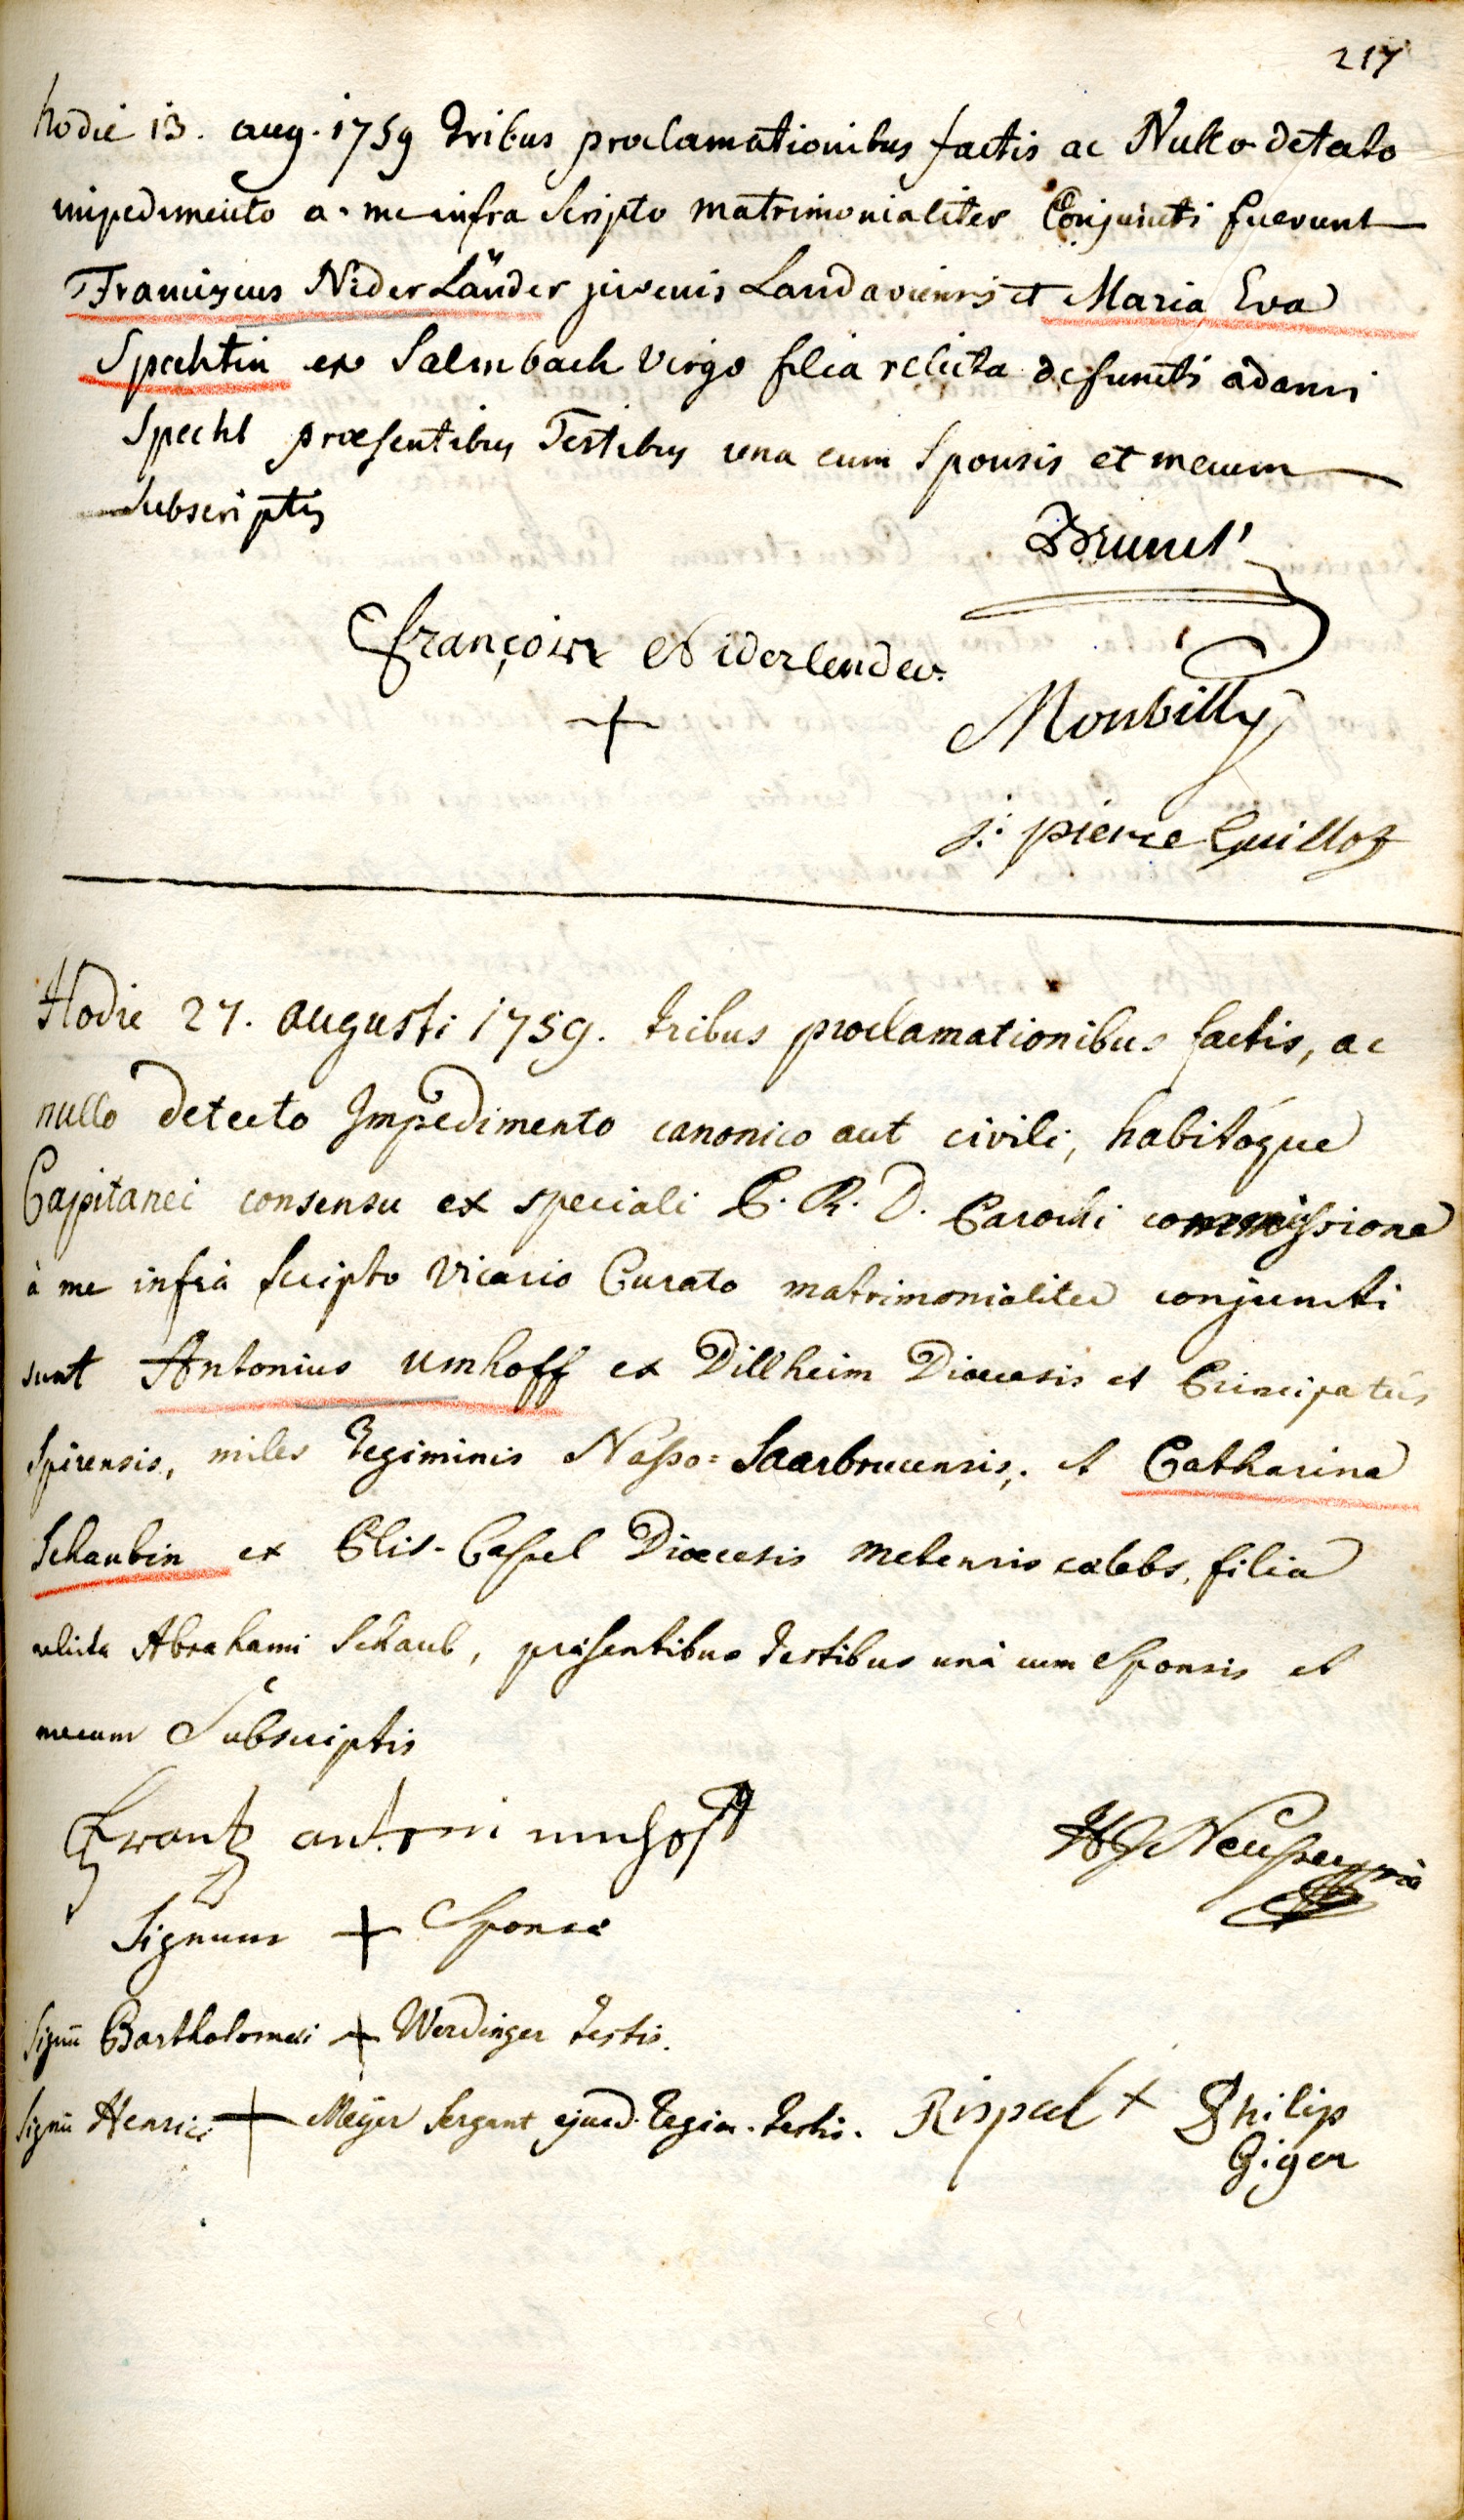 217
hodie 13. aug. 1759 tribus proclamationibus factis ac Nullo detecto
impedimento a me infra scripto matrimonialiter Conjuncti fuerunt
Franciscus NiderLänder juvenis Landaviensis et Maria Eva
Spechtin ex Salmbach virgo filia relicta defuncti adami
Specht præsentibus Testibus una cum sponsis et mecum
subscriptis
Brunet
françois Niderlender
+
Monbilly
j: pierre Guillot
Hodie 27. augusti 1759. tribus proclamationibus factis, ac
nullo detecto Impedimento canonico aut civili, habitóque
Capitanei consensu ex speciali P. R. D. Parochi commissione
à me infrà scripto Vicario Curato matrimonialiter conjuncti
sunt Antonius umhoff ex Dillheim Dioecesis et Principatûs
Spirensis, miles Regiminis Nasso=Saarbrucensis; et Catharina
Schaubin ex Blis-Cassel Dioecesis metensis cælebs, filia
relicta Abrahami Schaub, præsentibus testibus unà cum Sponsis et
mecum Subscriptis
Frantz antoni umhoff
Signum + Sponsæ
Signū Bartholomæi + Werdinger testis.
Signū Henrici + Meÿer Sergant ejusd. Regim. testis. Rispal + Philip
Giger